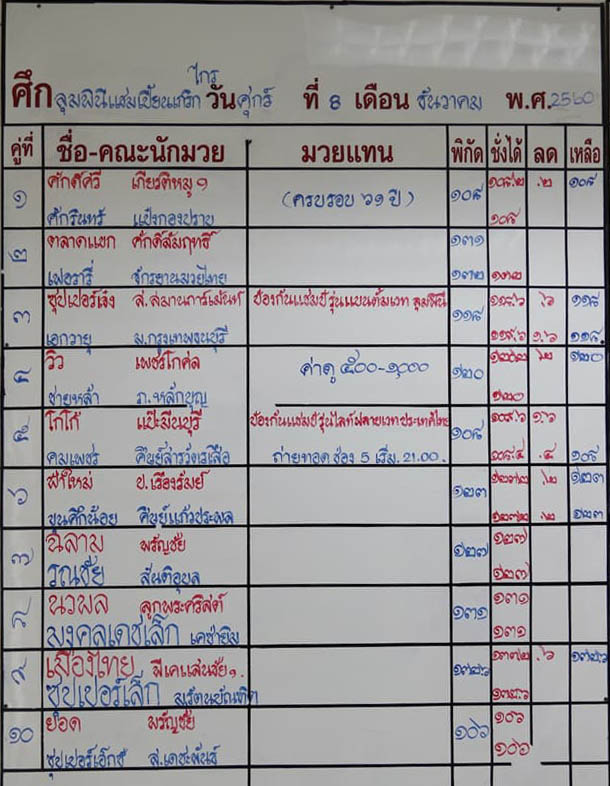 ไกร
ศึก ลุมพินีแชมเปี้ยนเกริก วัน ศุกร์ ที่ 8 เดือน ธันวาคม พ.ศ. 2560
คู่ที่ ชื่อ-คณะนักมวย มวยแทน พิกัด ชั่งได้ ลด เหลือ
๑ ศักดิ์ศรี เกียรติหมู ๙ (ครบรอบ ๖๑ ปี) ๑๐๘ ๑๐๘.๒ .๒ ๑๐๘
ศักรินทร์ แป๋งกองปราบ ๑๐๘
๒ ตลาดแขก ศักดิ์สัมฤทธิ์ ๑๓๑
เฟอรารี่ จักรยานมวยไทย ๑๓๒ ๑๓๒
๓ ซุปเปอร์เจ๋ง ส.สมานการ์เม้นท์ ป้องกันแชมป์รุ่นแบนตั้มเวท ลุมพินี ๑๑๘ ๑๑๘.๖ .๖ ๑๑๘
เอกวายุ ม.กรุงเทพธนบุรี ๑๑๘
๔ วิว เพชรโกศล ค่าดู ๕๐๐-๑,๐๐๐ ๑๒๐ ๑๒๐.๒ .๒ ๑๒๐
ชายหล้า ภ.หลักบุญ ๑๒๐
๕ โกโก้ แป๊ะมีนบุรี ป้องกันแชมป์รุ่นไลท์ฟลายเวทประเทศไทย ๑๐๘ ๑๐๙.๖ ๑.๖
คมเพชร ศิษย์สารวัตรเสือ ถ่ายทอด ช่อง 5 เริ่ม. 21.00. ๑๐๘.๔ .๔ ๑๐๘
๖ ฟ้าใหม่ ป.เรืองรัมย์ ๑๒๓ ๑๒๓.๒ .๒ ๑๒๓
ขุนศึกน้อย ศิษย์แก้วประพล ๑๒๓.๒ .๒ ๑๒๓
๗ ฉลาม พรัญชัย ๑๒๗ ๑๒๗
รณชัย สันติอุบล ๑๒๗
๘ นวพล ลูกพระศรีสต์ ๑๓๑ ๑๓๑
มงคลเดชเล็ก เคซ่ายิม ๑๓๑
๙ เมืองไทย พี.เค.แสนชัยฯ. .๖
ซุปเปอร์เล็ก ม.รัตนบัณฑิต
๑๐ ยอด พรัญชัย ๑๐๖ ๑๐๖
ซุปเปอร์เอ็กซ์ ส.เดชะพันธ์ ๑๐๖